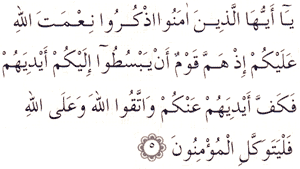 يَآ أَيُّهَا الَّذِينَ اٰمَنُوا اذْكُرُوا نِعْمَتَ اللهِ
عَلَيْكُمْ إِذْ هَمَّ قَوْمٌ أَنْ يَبْسُطُوٓا إِلَيْكُمْ أَيْدِيَهُمْ
فَكَفَّ أَيْدِيَهُمْ عَنْكُمْ وَاتَّقُوا اللهَ وَعَلَى اللهِ
فَلْيَتَوَكَّلِ الْمُؤْمِنُونَ ٥